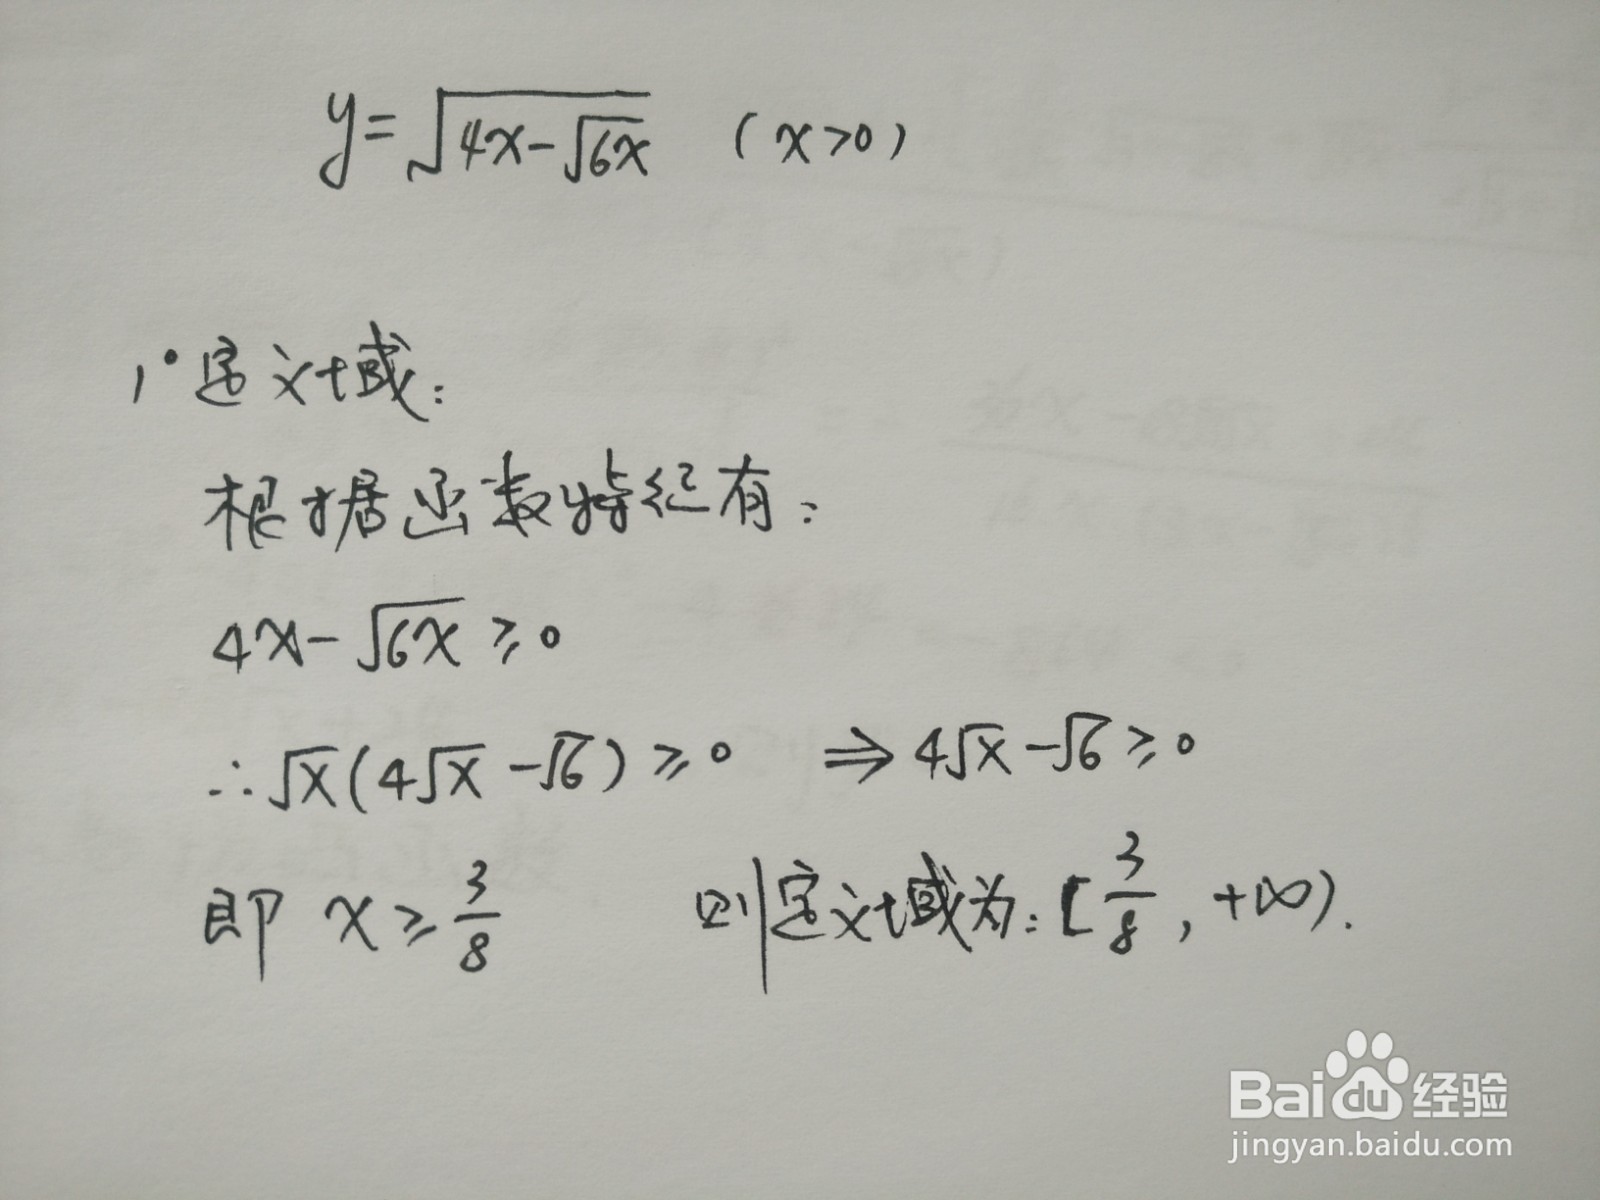 y=√(4x-√(6x)) (x>0)
1°定义域:
根据函数特征有:
4x-√(6x) ≥0
∴√x(4√x-√6)≥0 ⇒4√x-√6≥0
即 x≥3/8 则定义域为:[3/8,+∞).
Baidu经验
jingyan.baidu.com